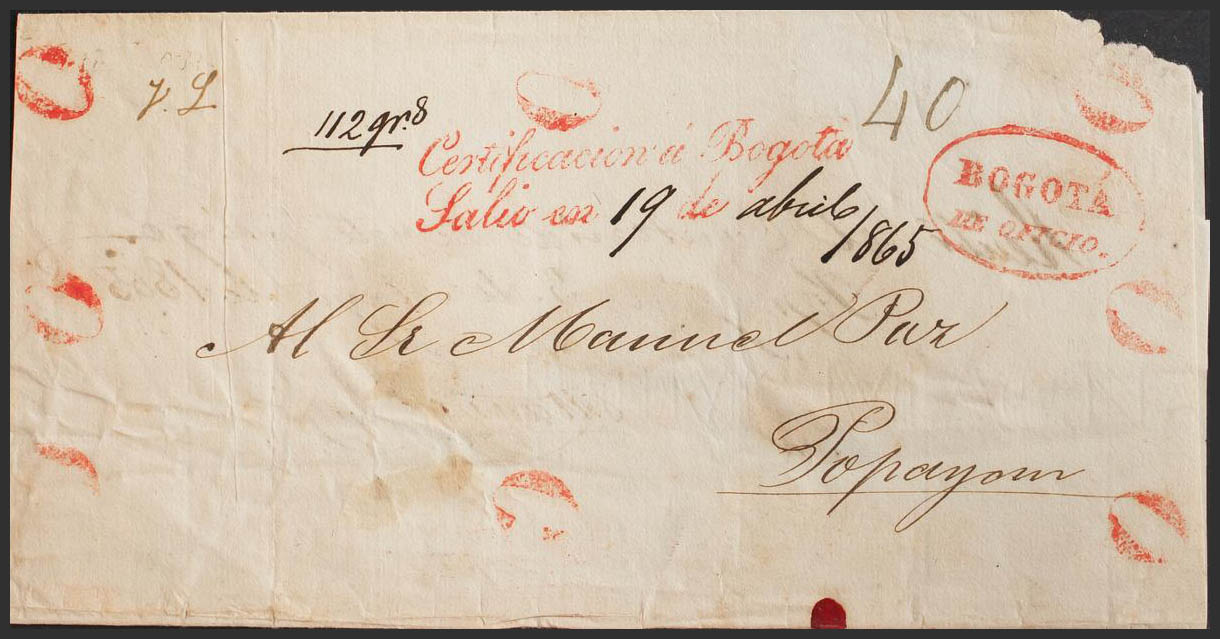 J. L
112 gr.s
40
Certificacion á Bogotá
Salio en 19 de abril
1865
BOGOTÁ
DE OFICIO.
Al Sr Manuel Paz
Popayan